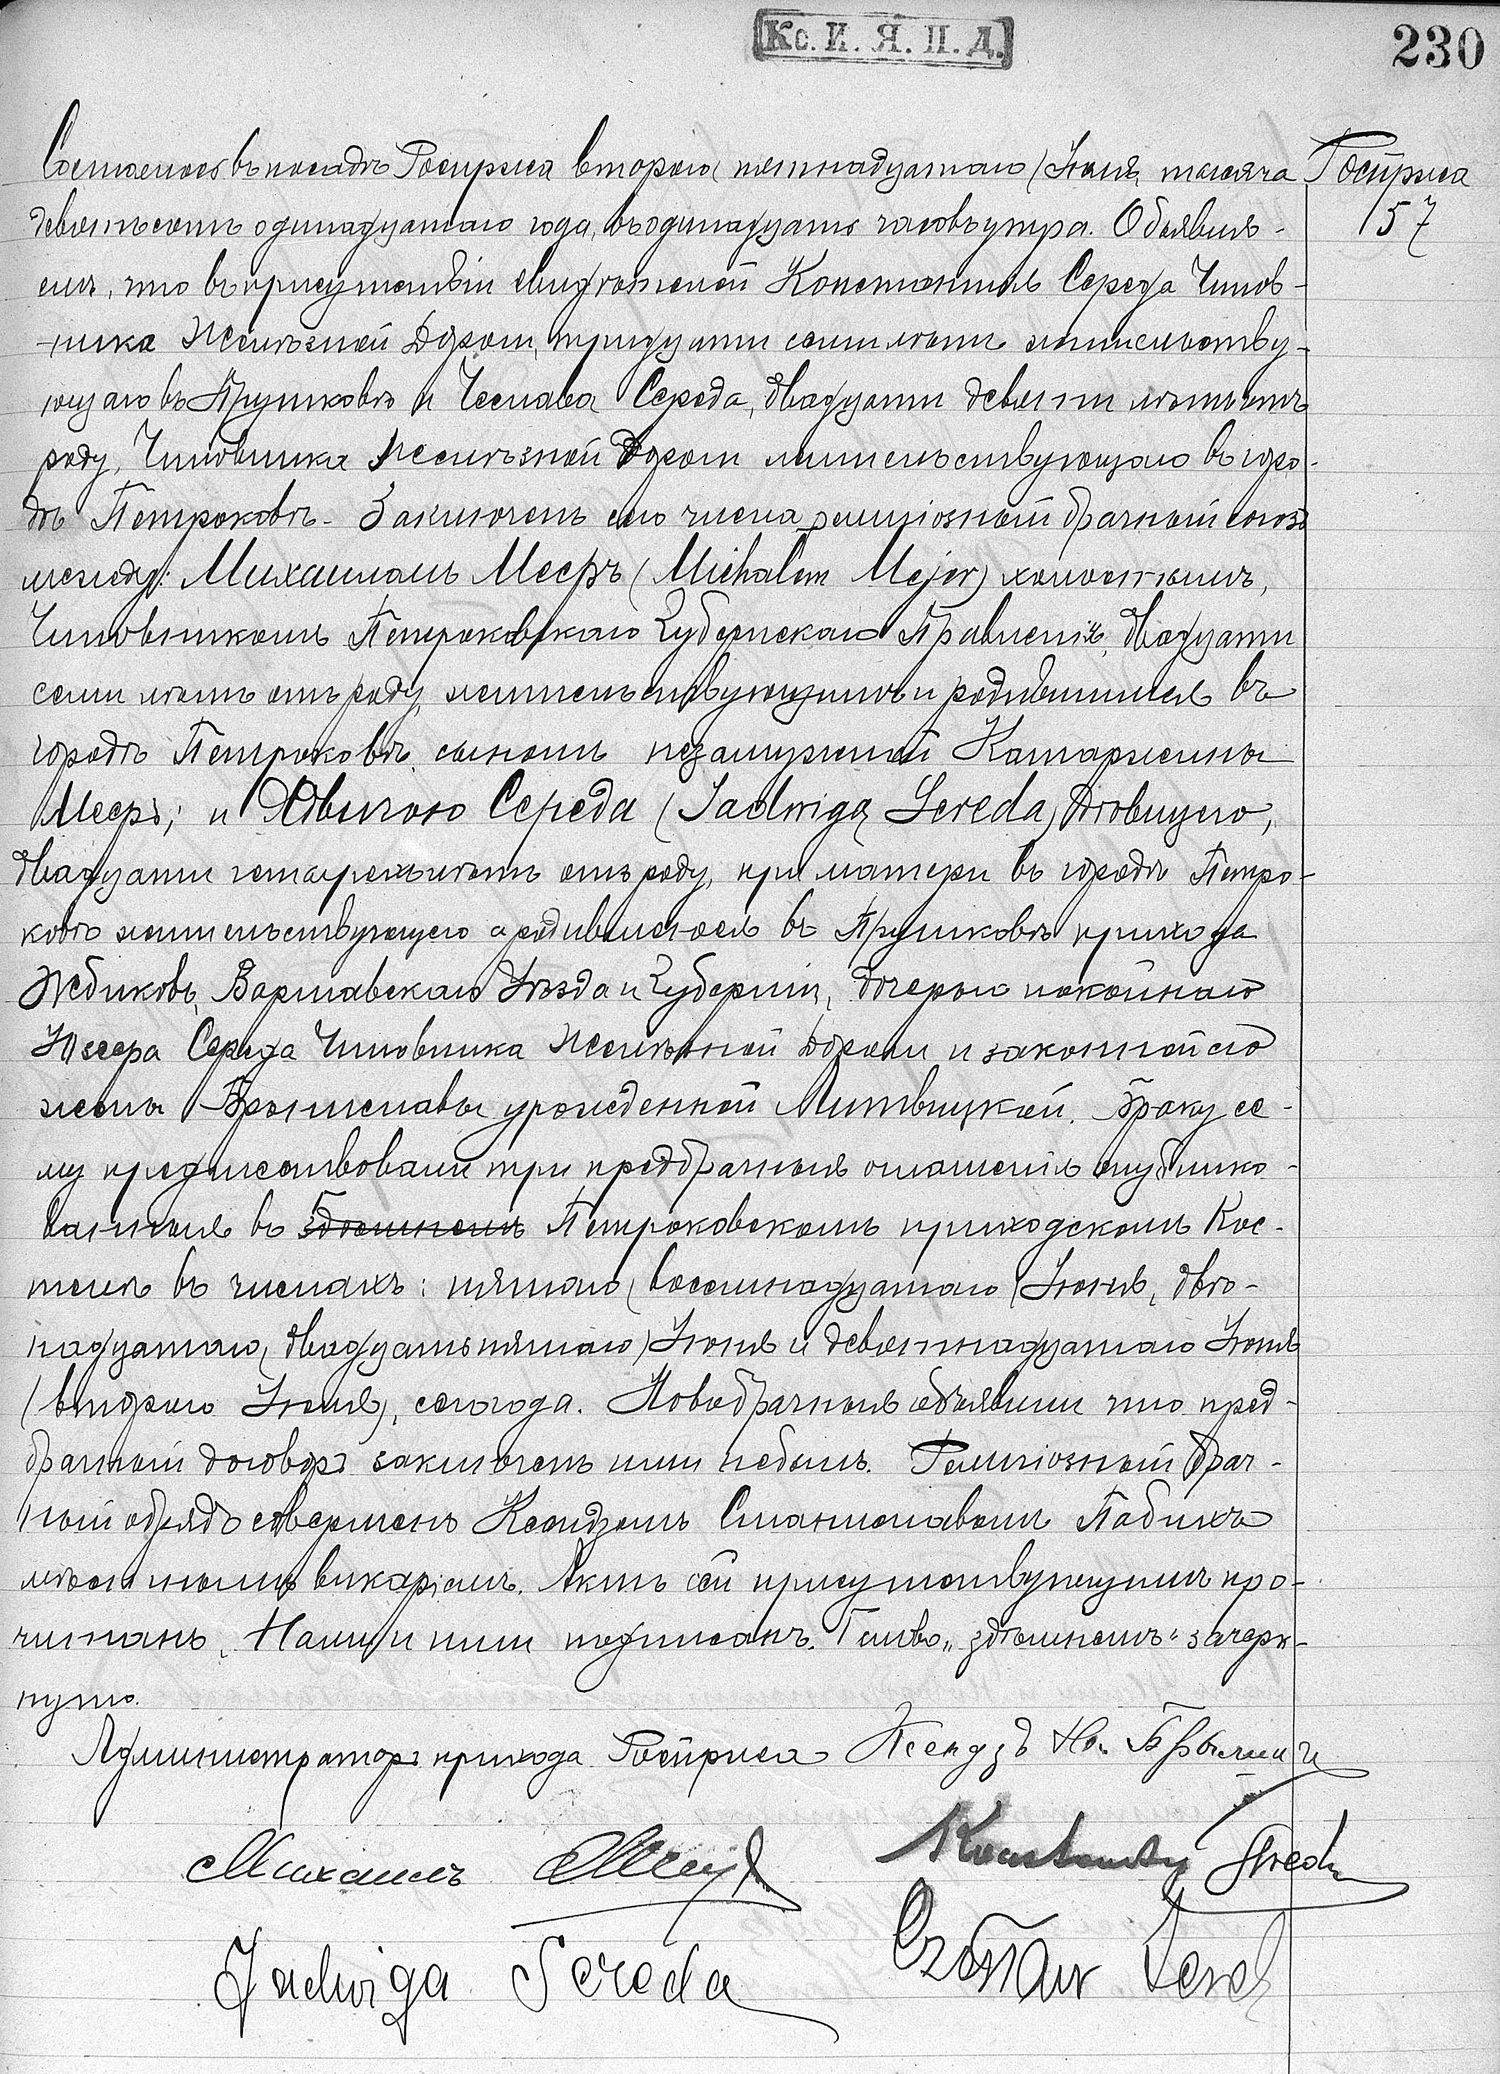 Кс. И. Я. П. Д.
230
Состоялось въ посадѣ Роспржа второго (пятнадцатаго) Іюля тысяча
Роспржа
57
девятьсотъ одинадцатаго года, въ одинадцать часовъ утра. Объявля-
емъ, что въ присутствіи свидѣтелей Константина Середа Чинов-
-ника Желѣзной Дороги, тридцати семи лѣтъ жительству-
ющаго въ Прушковѣ и Чеслава Середа, двадцати девяти лѣтъ отъ
роду, Чиновника Желѣзной Дороги жительствующаго въ горо-
дѣ Петроковѣ. Заключенъ сего числа религіозный брачный союзъ
между: Михаиломъ Мееръ (Michałem Mejer) холостымъ,
Чиновникомъ Петроковскаго Губернскаго Правленія, двадцати
семи лѣтъ отъ роду, жительствующимъ и родившимся въ
городѣ Петроковѣ, сыномъ незамужней Катаржины
Мееръ; и Ядвигою Середа (Jadwigą Sereda) дѣвицею,
двадцати четырехъ лѣтъ отъ роду, при матери въ городѣ Петро-
ковѣ жительствующею а родившеюся въ Прушковѣ прихода
Жбиковъ, Варшавскаго Уѣзда и Губерніи, дочерью покойнаго
Юзефа Середа Чиновника Желѣзной Дороги и законной его
жены Брониславы урожденной Литвицкой. Браку се-
му предшествовали три предбрачныя оглашенія опублико-
ванныя въ здѣшнемъ Петроковскомъ приходскомъ Кос-
телѣ въ числахъ: пятаго (восемнадцатаго) Іюня, двѣ-
надцатаго, двадцать пятаго) Іюня и девятнадцатаго Іюня
(второго Іюля), сего года. Новобрачные объявили что пред-
брачный договоръ заключенъ ими не былъ. Религіозный брач-
ный обрядъ совершенъ Ксендзомъ Станиславомъ Пабихъ
мѣстнымъ викаріемъ. Актъ сей присутствующимъ про-
читанъ, Нами и ими подписанъ. Слово „здѣшнемъ" зачерк-
нуто.
Администраторъ прихода Роспржа Ксендзъ
Михаилъ Меер
Konstanty Sereda
Jadwiga Sereda
Czesław Sereda